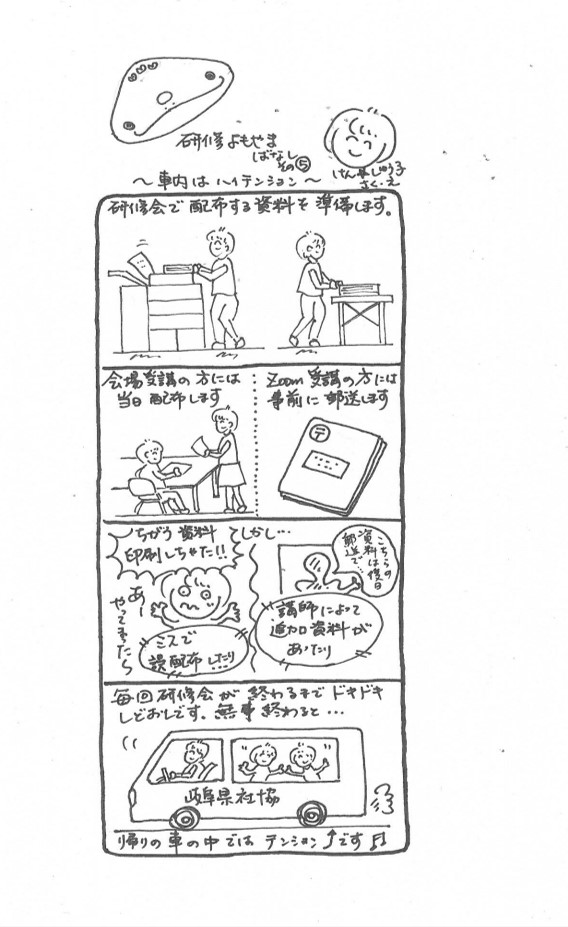 研修よもやま
ばなし
その⑤
けんしゅう子
さく・え
～車内はハイテンション～
研修会で配布する資料を準備します。
会場受講の方には
当日配布します
Zoom受講の方には
事前に郵送します
〒
しかし…
ちがう資料
印刷しちゃた!!
あー
やってまったら
ミスで
誤配布したり
こちらの
資料は後日
郵送で…
講師によって
追加資料が
あったり
毎回研修会が終わるまでドキドキ
しどおしです。無事終わると…
岐阜県社協
帰りの車の中ではテンション↑です♫